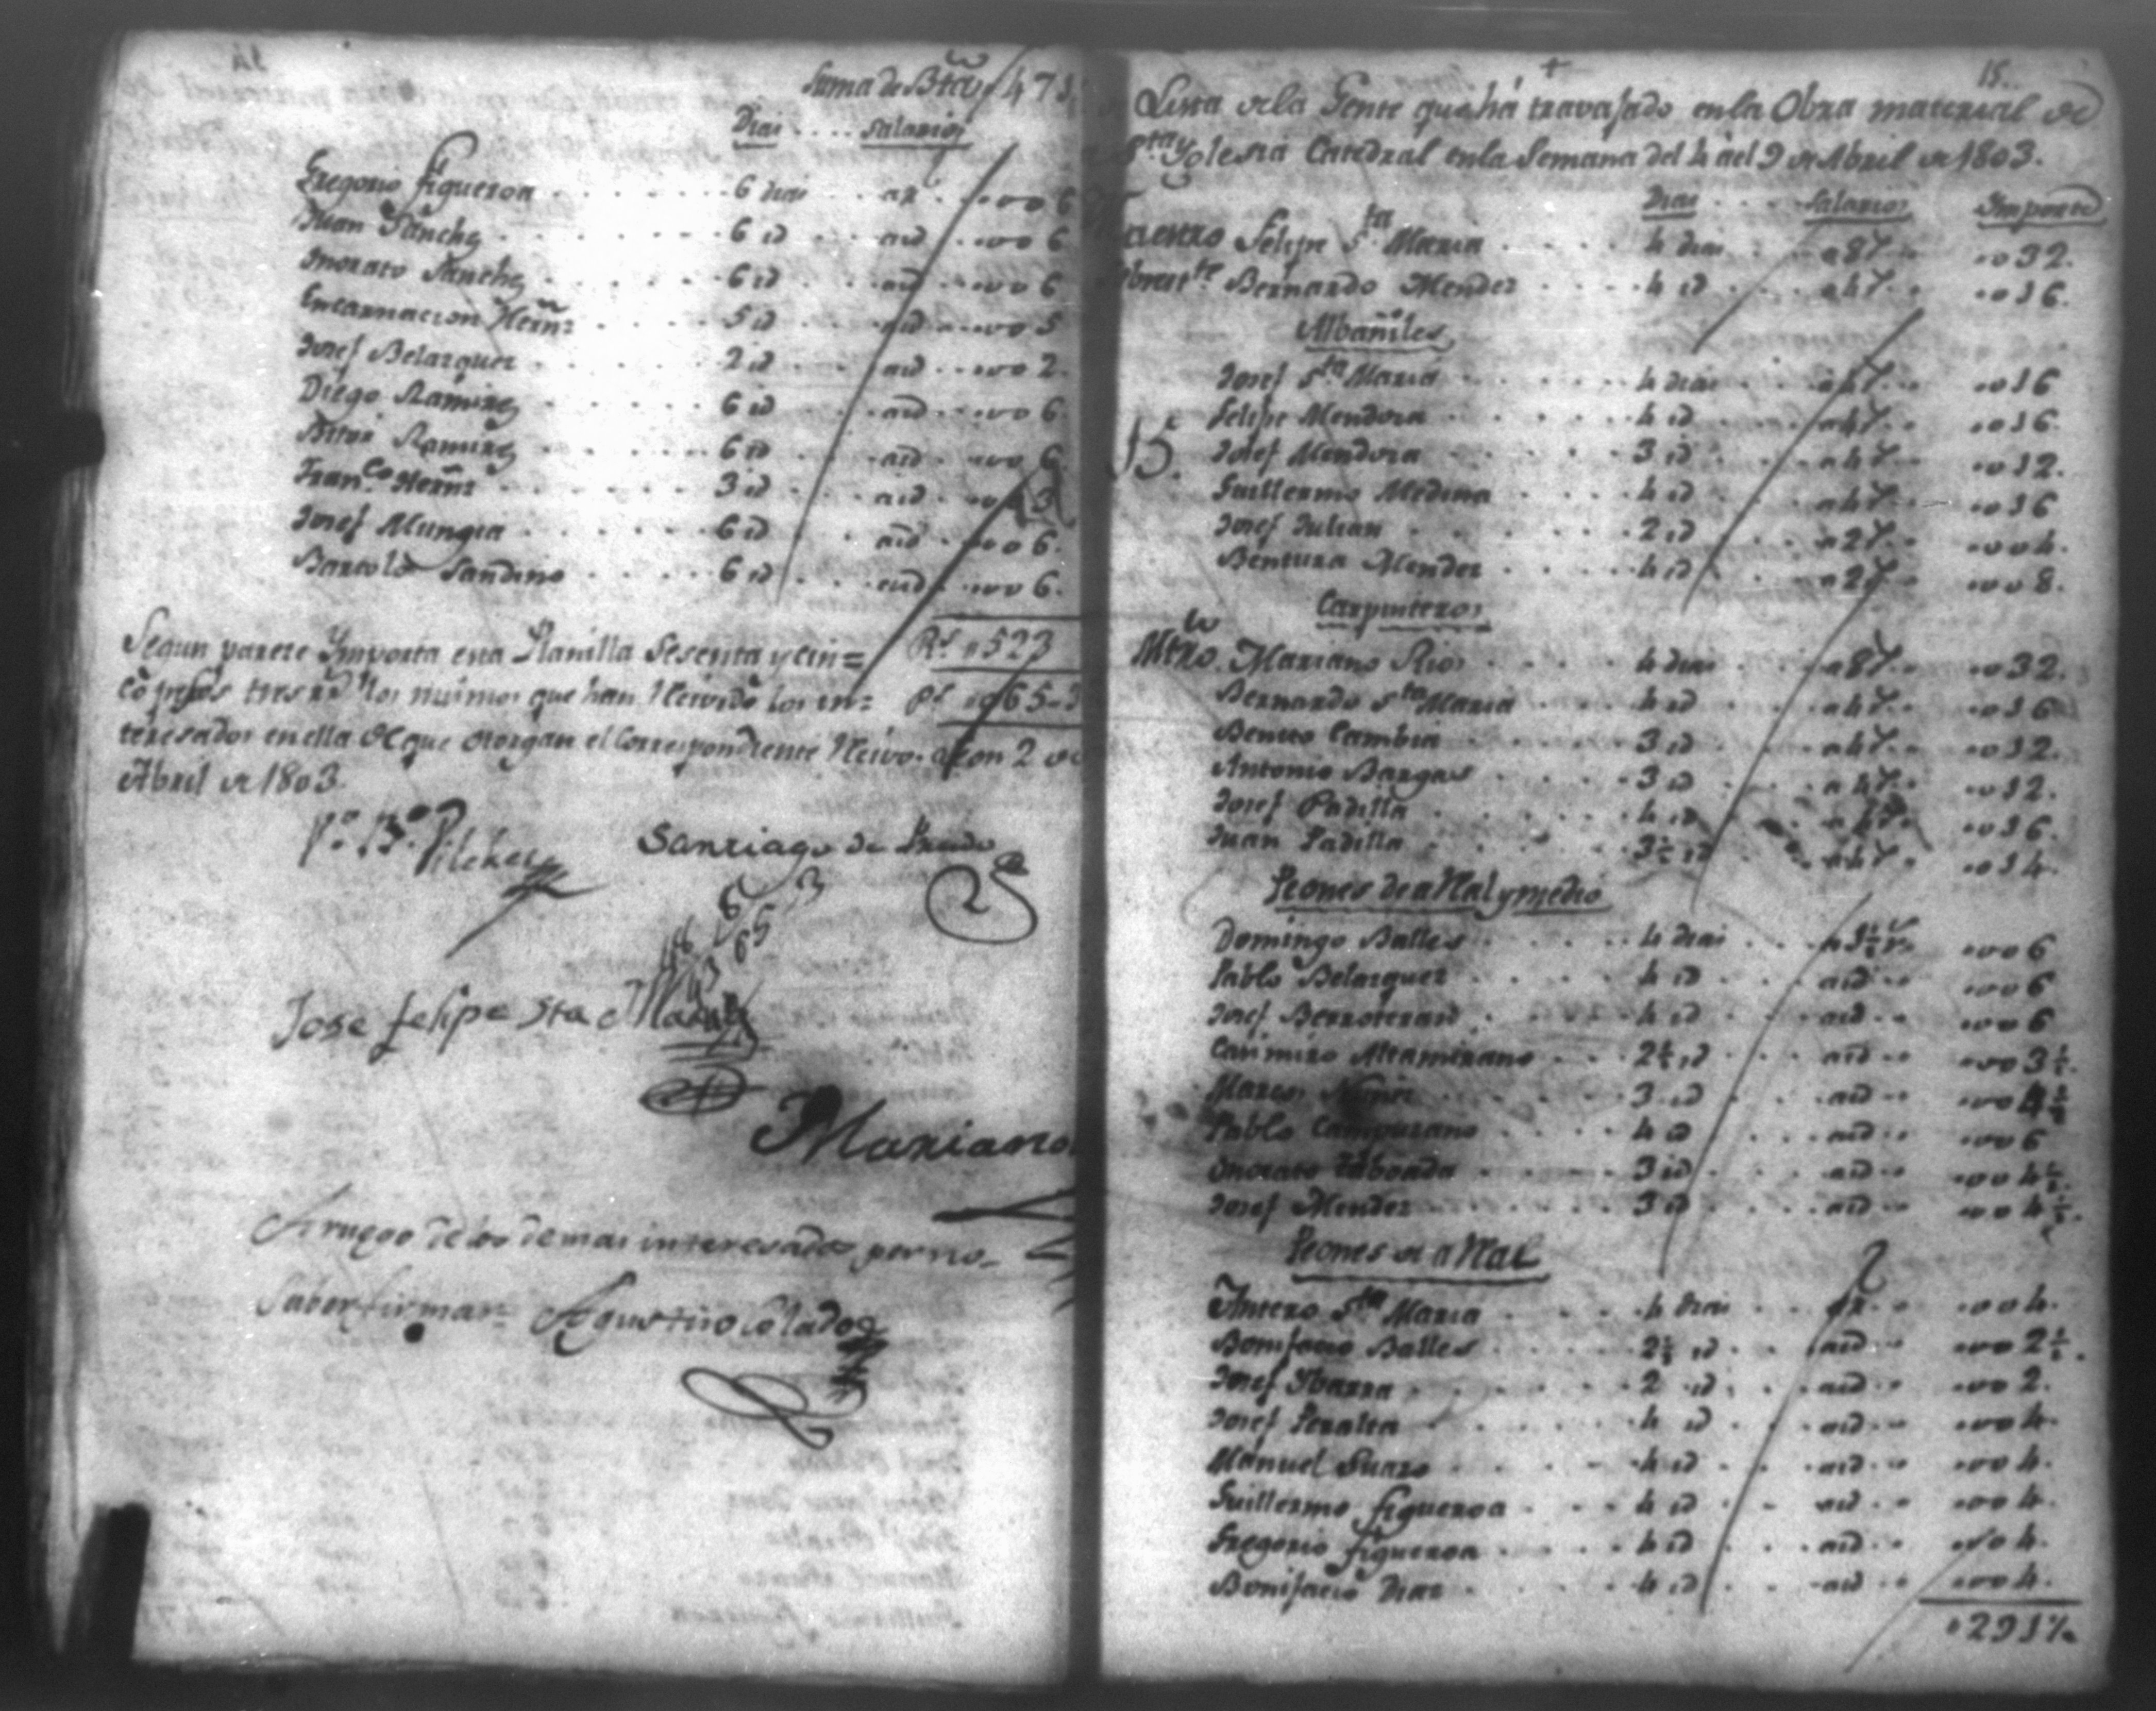 Suma de Bta 471
Dias .... Salarios
Gregorio Figueroa . . . . . . . . 6 dias . . ar . . . . 006
Juan Sanchz . . . . . . . . 6 id . . . aid . . . 006
Onorato Sanchz . . . . . . . 6 id . . . aid . . . 006
Encarnacion Hernz . . . . . . 5 id . . . aid . . . 005
Josef Belazquez . . . . . . . 2 id . . . aid . . . 002.
Diego Ramirez . . . . . . . 6 id . . . aid . . . 006.
Bitor Ramirez . . . . . . . 6 id . . . aid . . . 006.
Franco Hernz . . . . . . . . 3 id . . . aid . . . 003
Josef Mungia . . . . . . . . 6 id . . . aid . . . 006.
Bartolo Sandino . . . . . . 6 id . . . aid . . . 006.
Rs 0523
Segun parece Ymporta esta Planilla Sesenta y cin=
co pesos tres rs los mismos que han Recivido los in=
Ps 0065-3
teresados en ella de que otorgan el Correspondiente Recivo. Leon 2 de
Abril de 1803.
Vo. Bo. Vilchez
Santiago de Pardo
6 3
65
Jose felipe Sta Maria
Mariano
A ruego de los demas interesados por no
Saber firmar= Agustino Colado
15.
Lista de la Gente que há travajado en la Obra material de
Sta Yglesia Catedral en la Semana del 4 á el 9 de Abril de 1803.
Dias . . . Salarios Importe
Maestro Felipe Sta Maria . . . . 4 dias . . . a 8r . . 0032.
Sobrestte Bernardo Mendez . . . . 4 id . . . a 4r . . 0016.
Albañiles
Josef Sta Maria . . . . . . 4 dias . . . a 4r . . 0016
Felipe Mendoza . . . . . . 4 id . . . a 4r . . 0016.
15.
Josef Mendoza . . . . . . 3 id . . . a 4r . . 0012.
Guillermo Medina . . . . . 4 id . . . a 4r . . 0016
Josef Julian . . . . . . . 2 id . . . a 2r . . 0004.
Bentura Mendez . . . . . . 4 id . . . a 2r . . 0008.
Carpinteros
Mtro. Mariano Rios . . . . . 4 dias . . . a 8r . . 0032.
Bernardo Sta Maria . . . . . 4 id . . . a 4r . . 0016
Benito Cambia . . . . . . 3 id . . . a 4r . . 0012.
Antonio Bargas . . . . . . 3 id . . . a 4r . . 0012.
Josef Padilla . . . . . . 4 id . . . a 4r . . 0016.
Juan Padilla . . . . . . 3½ id . . . a 4r . . 0014.
Peones de a Real y medio
Domingo Balles . . . . . . 4 dias . . . a 1½ r . . 0006
Pablo Belazquez . . . . . 4 id . . . aid . . 0006
Josef Berroteran . . . . . 4 id . . . aid . . 0006
Casimiro Altamirano . . . 2½ id . . . aid . . 0003½.
Marcos Nuñez . . . . . . 3 id . . . aid . . 0004½
Pablo Campuzano . . . . . 4 id . . . aid . . 0006
Onorato Taboada . . . . . 3 id . . . aid . . 0004½.
Josef Mendez . . . . . . . 3 id . . . aid . . 0004½.
Peones de a Real
Antero Sta Maria . . . . . 4 dias . . . ar . . 0004.
Bonifacio Balles . . . . . 2½ id . . . aid . . 0002½.
Josef Ybarra . . . . . . . 2 id . . . aid . . 0002.
Josef Peralta . . . . . . 4 id . . . aid . . 0004.
Manuel Suazo . . . . . . 4 id . . . aid . . 0004.
Guillermo Figueroa . . . . 4 id . . . aid . . 0004.
Gregorio Figueroa . . . . 4 id . . . aid . . 0004.
Bonifacio Diaz . . . . . . 4 id . . . aid . . 0004.
0291½